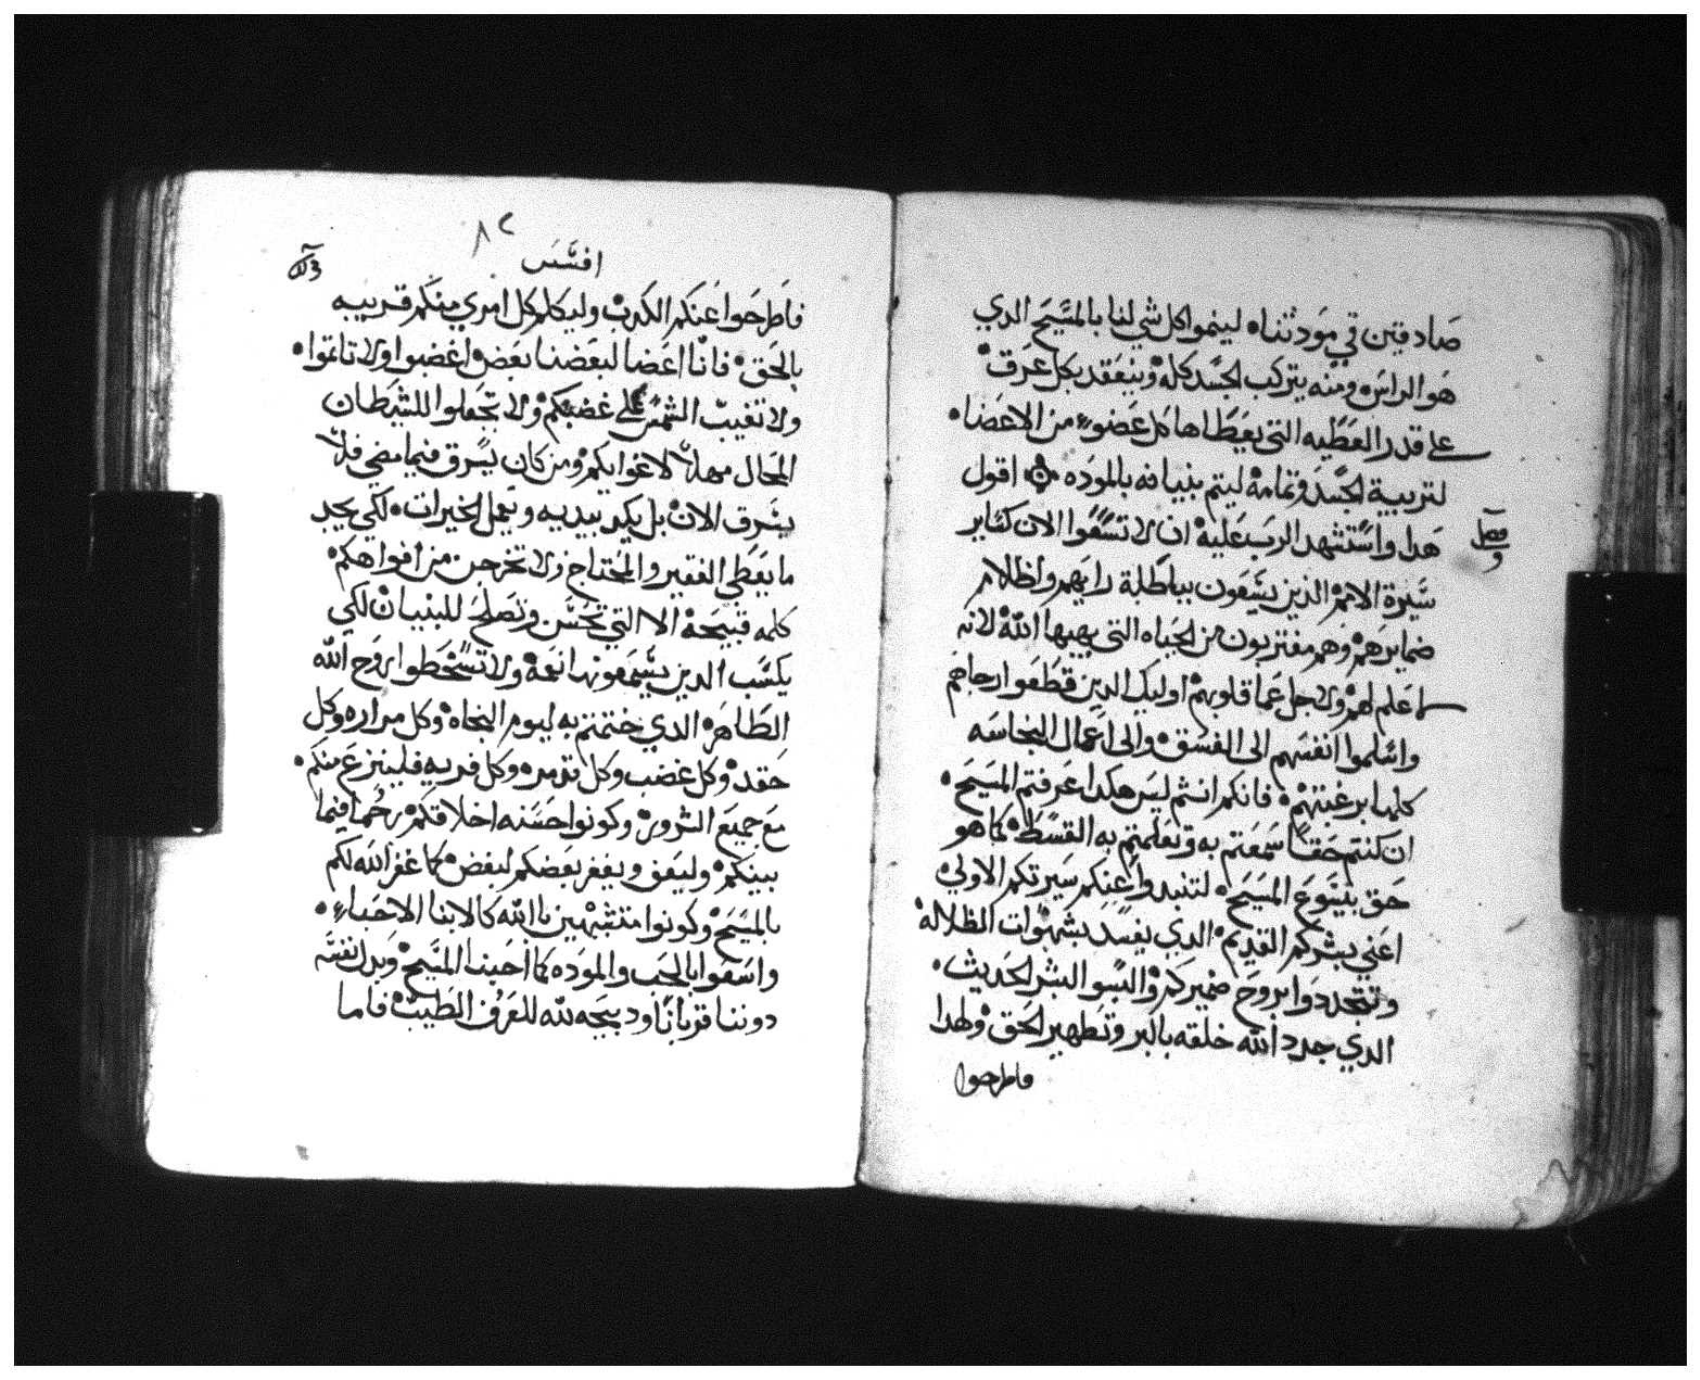 صادقين في مودتنا لينموا كل شي لنا بالمسيح الدي
هو الراس ومنه يتركب الجسد كله وينعقد بكل عرق
علي قدر العطيه التي يعطاها كل عضو من الاعضا
لتربية الجسد وتمامه ليتم بنيانه بالموده اقول
هدا واستشهد الرب عليه ان لا تسعوا الان كساير
فصل
سيرة الامم الذين يسعون بباطلة رايهم واظلام
ضمايرهم وهم مفتربون من الحياه التي يهبها الله لانه
لا علم لهم ولاجل عما قلوبهم اوليك الدين قطعوا رجاهم
واسلموا انفسهم الى الفسق والى اعمال النجاسه
كلها برغبتهم فانكم انتم ليس هكدا عرفتم المسيح
ان كنتم حقا سمعتم به وتعلمتم به القسط كما هو
حق بيسوع المسيح لتنبدوا عنكم سيرتكم الاولي
اعني بشركم القديم الدي يفسد بشهوات الظلاله
وتتجددوا بروح ضميركم والبسو البشر الحديث
الدي جدد الله خلقه بالبر وتطهير الحق ولهدا
فاطرحوا
٨٢
افسس
فاطرحوا عنكم الكدب وليكلم كل امري منكم قريبه
بالحق فانا اعضا لبعضنا بعض اغضبوا ولا تاتموا
ولا تغيب الشمس علي غضبكم ولا تجعلوا للشيطان
المحال مهلا لاغوايكم ومن كان يسرق فيما مضي فلا
يسرق الان بل يكد بيديه ويعمل الخيرات لكي يجد
ما يعطي الفقير والمحتاج ولا تخرجن من افواهكم
كلمه قبيحة الا التي تحسن وتصلح للبنيان لكي
يكسب الدين يسمعونها نعمة ولا تسخطوا روح الله
الطاهره الدي ختمتم به ليوم النجاه وكل مراره وكل
حقد وكل غضب وكل تدمره وكل فريه فلينزع منكم
مع جميع الشرور وكونوا حسنه اخلاقكم رحما فيما
بينكم وليعف ويغفر بعضكم لبعض كما غفر الله لكم
بالمسيح وكونوا متشبهين بالله كالابنا الاحباء
واسعوا بالحب والموده كما احبنا المسيح وبدل نفسه
دوننا قربانا ودبيحه لله للعرف الطيب فاما